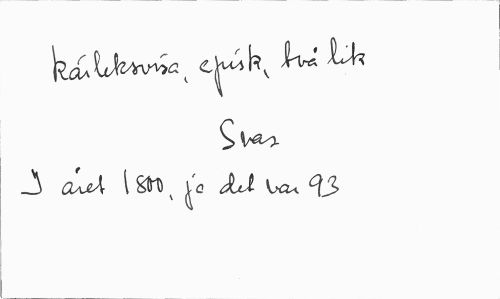 Kärleksvisa, episk, två lik
Svar
I året 1800, jo det var 93